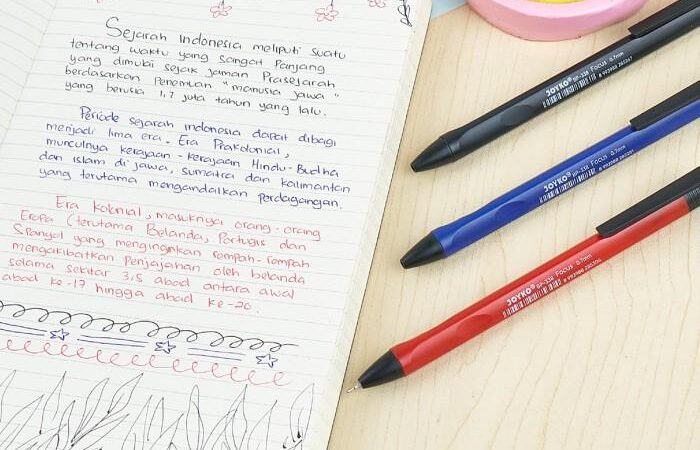 Sejarah Indonesia meliputi suatu
rentang waktu yang sangat Panjang
yang dimulai sejak jaman Prasejarah
berdasarkan Penemuan "manusia jawa"
yang berusia 1,7 juta tahun yang lalu.
Periode sejarah indonesia dapat dibagi
menjadi lima era. Era Prakolonial,
munculnya kerajaan-kerajaan Hindu-Budha
dan islam di jawa, sumatra dan kalimantan
yang terutama mengandalkan perdagangan.
Era kolonial, masuknya orang-orang
Eropa (terutama Belanda, Portugis dan
Spanyol yang menginginkan rempah-rempah
mengakibatkan Penjajahan oleh belanda
selama sekitar 3,5 abad antara awal
abad ke-17 hingga abad ke-20.
JOYKO® BP-338 Focus 0.7mm
JOYKO® BP-338 Focus 0.7mm
JOYKO® BP-338 Focus 0.7mm